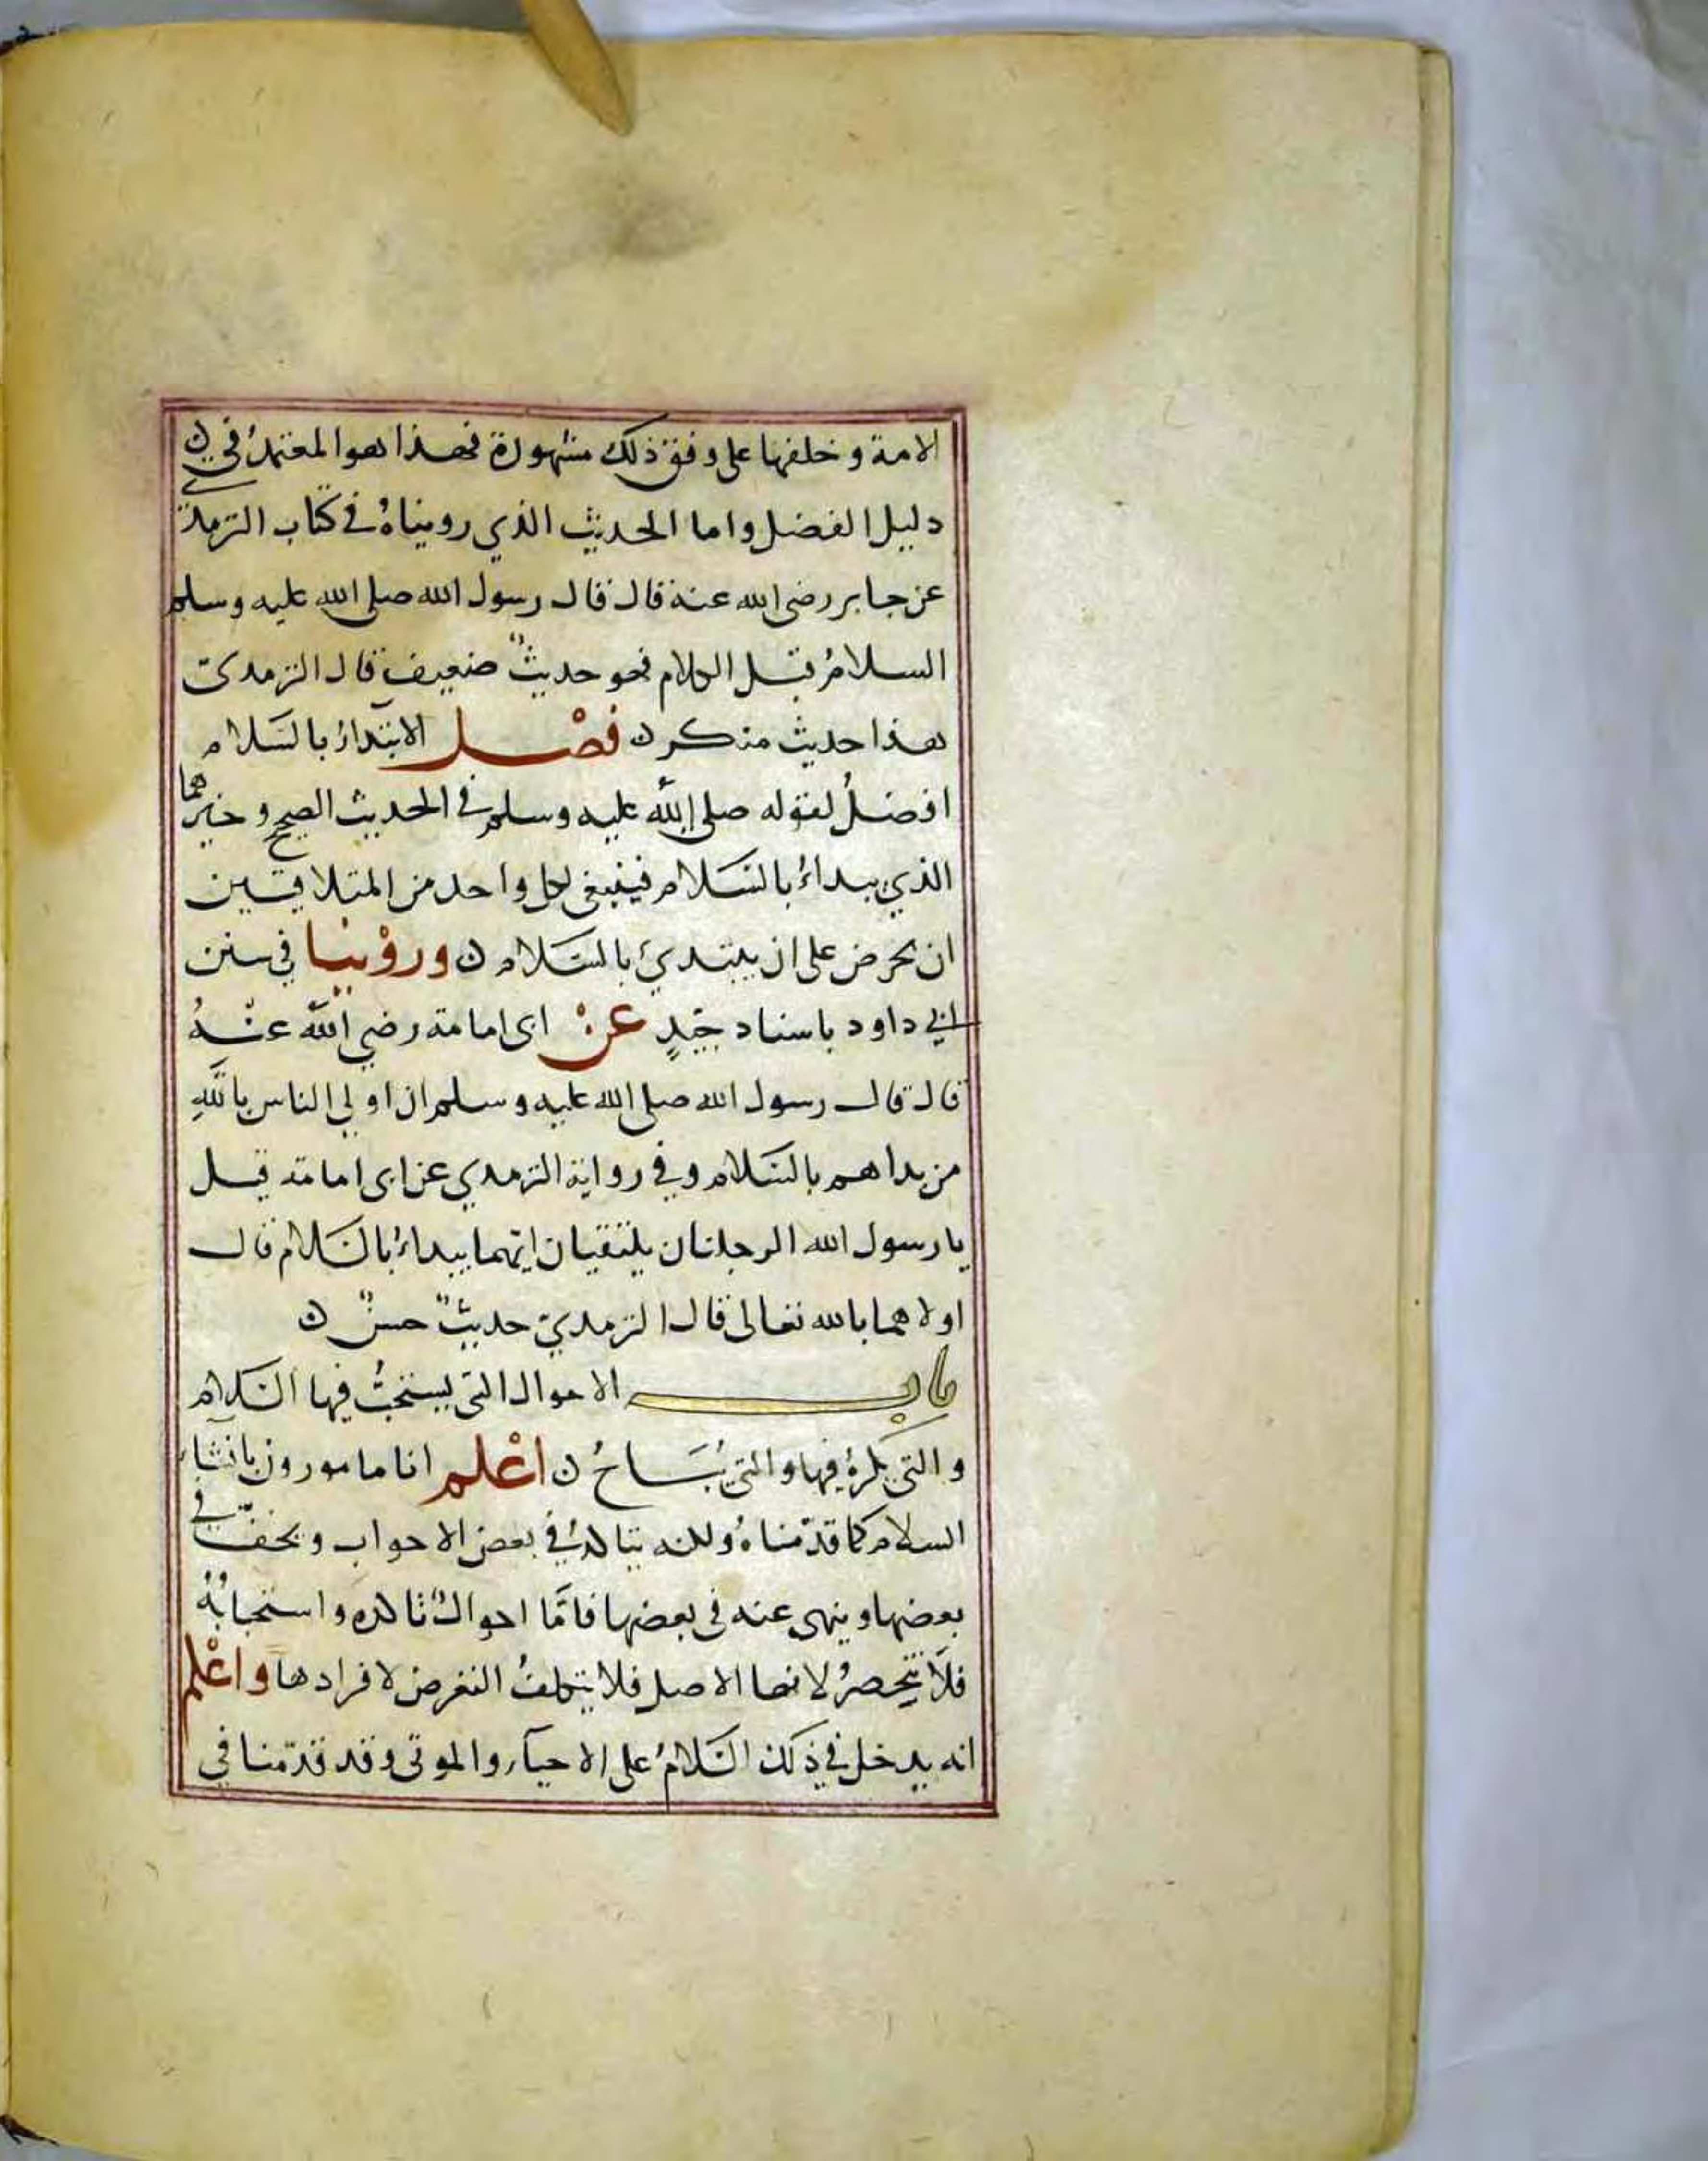 الامة وخلفها على وفق ذلك مشهورة فهذا هو المعتمد في
دليل الفضل واما الحديث الذي رويناه في كتاب الترمذي
عن جابر رضى الله عنه قال قال رسول الله صلى الله عليه وسلم
السلامُ قبل الكلام فهو حديثٌ ضعيف قال الترمدى
هذا حديث منكر ن فصْل الابتداءُ بالسَلام
افضلُ لقوله صلى الله عليه وسلم في الحديث الصحيح وخيرهما
الذي يبداءُ بالسَلام فينبغى لكل واحد من المتلاقيين
ان يحرص على ان يبتدئ بالسَلام ن وروْينا في سنن
ابي داود باسناد جيّدٍ عنْ ابى امامة رضي الله عنْهُ
قال قال رسول الله صلى الله عليه وسلم ان اولى الناس باللهِ
من بداهم بالسَلام وفي رواية الترمدي عن ابى امامة قيل
يا رسول الله الرجلان يلتقيان ايّهما يبداءُ بالسَلام قال
اولاهما بالله تعالى قال الترمديّ حديثٌ حسنٌ ن
باب الاحوال التى يستحبُّ فيها السَلام
والتى يكرهُ فيها والتى يُبَاحُ ن اعْلم انا مامورون بافشاء
السلام كما قدّمناهُ ولكنه يتاكدُ في بعض الاحواب ويخفّ في
بعضها وينهى عنه فى بعضها فامَّا احوالُ تاكده واستحبابُهُ
فلَا تنحصرُ لانها الاصل فلا يتكلفُ التعرض لافرادها واعْلم
انه يدخل في ذلك السَلامُ على الاحيآء والموتى وقد قدّمنا في